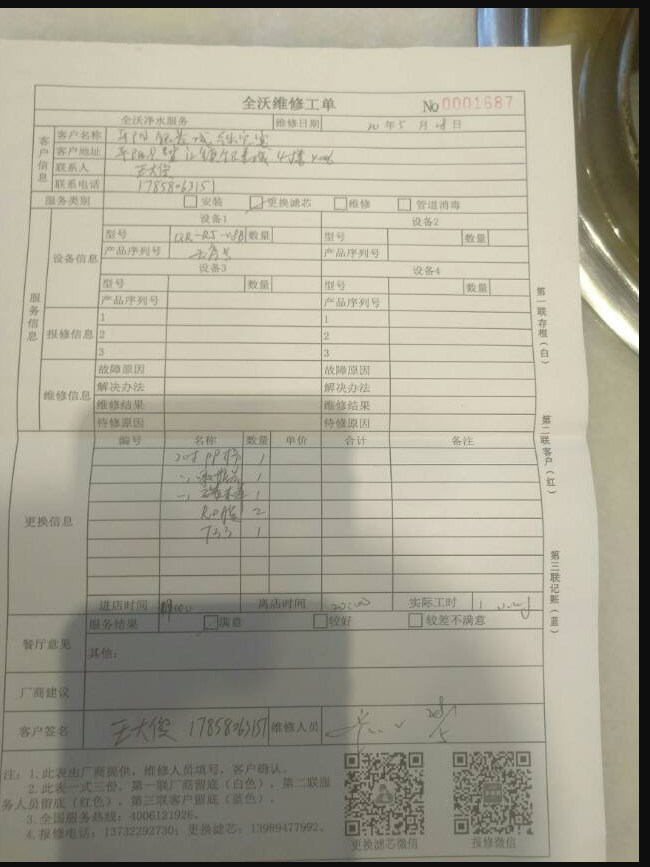 全沃维修工单 No 0001687
全沃净水服务 维修日期 20年5月28日
客户信息
客户名称
客户地址
联系人 王大俊
联系电话 17858063151
服务类别 安装 更换滤芯 维修 管道消毒
服务信息
设备信息
设备1 设备2
型号 数量 型号 数量
产品序列号 产品序列号
设备3 设备4
型号 数量 型号 数量
产品序列号 产品序列号
报修信息
1 1
2 2
3 3
维修信息
故障原因 故障原因
解决办法 解决办法
维修结果 维修结果
待修原因 待修原因
更换信息
编号 名称 数量 单价 合计 备注
20寸PP棉 1
1
1
RO膜 2
T33 1
进店时间 离店时间 20:00 实际工时
服务结果 满意 较好 较差不满意
餐厅意见
其他:
厂商建议
客户签名 王大俊 17858063151 维修人员
注: 1. 此表由厂商提供, 维修人员填写, 客户确认。
2. 此表一式三份, 第一联厂商留底(白色), 第二联服
务人员留底(红色), 第三联客户留底(蓝色)。
3. 全国服务热线: 4006121926。
4. 报修电话: 13732292730; 更换滤芯: 13989477992。
更换滤芯微信 报修微信
第一联存根(白)
第二联客户(红)
第三联记账(蓝)